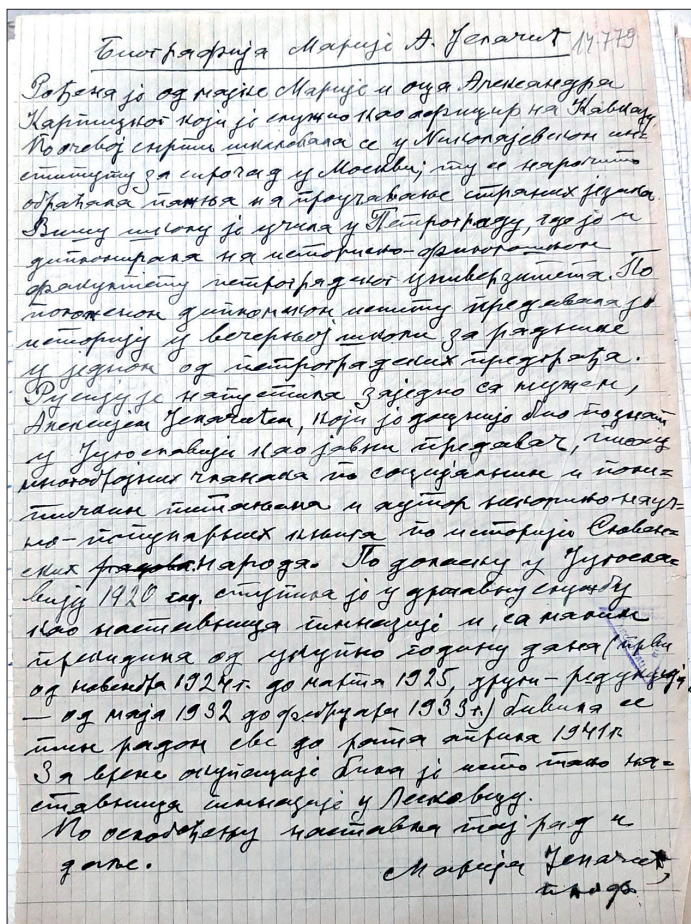 Биографија Марије А. Јелачић 14.779
Рођена је од мајке Марије и оца Александра
Карпицког који је служио као официр на Кавказу
По очевој смрти школовала се у Николајевском ин-
ституту за сирочад у Москви; ту се нарочито
обраћала пажња на проучавање страних језика.
Вишу школу је учила у Петрограду, где је и
дипломирала на историско-филолошком
факултету петроградског универзитета. По
положеном дипломском испиту предавала је
историју у вечерњој школи за раднике
у једном од петроградских предграђа.
Русију је напустила заједно са мужем,
Алексијем Јелачићем, који је доцније био познат
у Југославији као јавни предавач, писац
многобројних чланака по социјалним и поли-
тичким питањима и аутор неколико науч-
но-популарних књига по историји Словен-
ских народа. По доласку у Југосла-
вију 1920 год. ступила је у државну службу
као наставница гимназије и, са малим
прекидима од укупно годину дана (први
од новембра 1924 г. до марта 1925, други – редукција
— од маја 1932 до фебруара 1933 г.) бавила се
тим радом све до рата априла 1941 г.
За време окупације била је исто тако на-
ставница гимназије у Лесковцу.
По ослобођењу наставља тај рад и
даље.
Марија Јелачић,
проф.